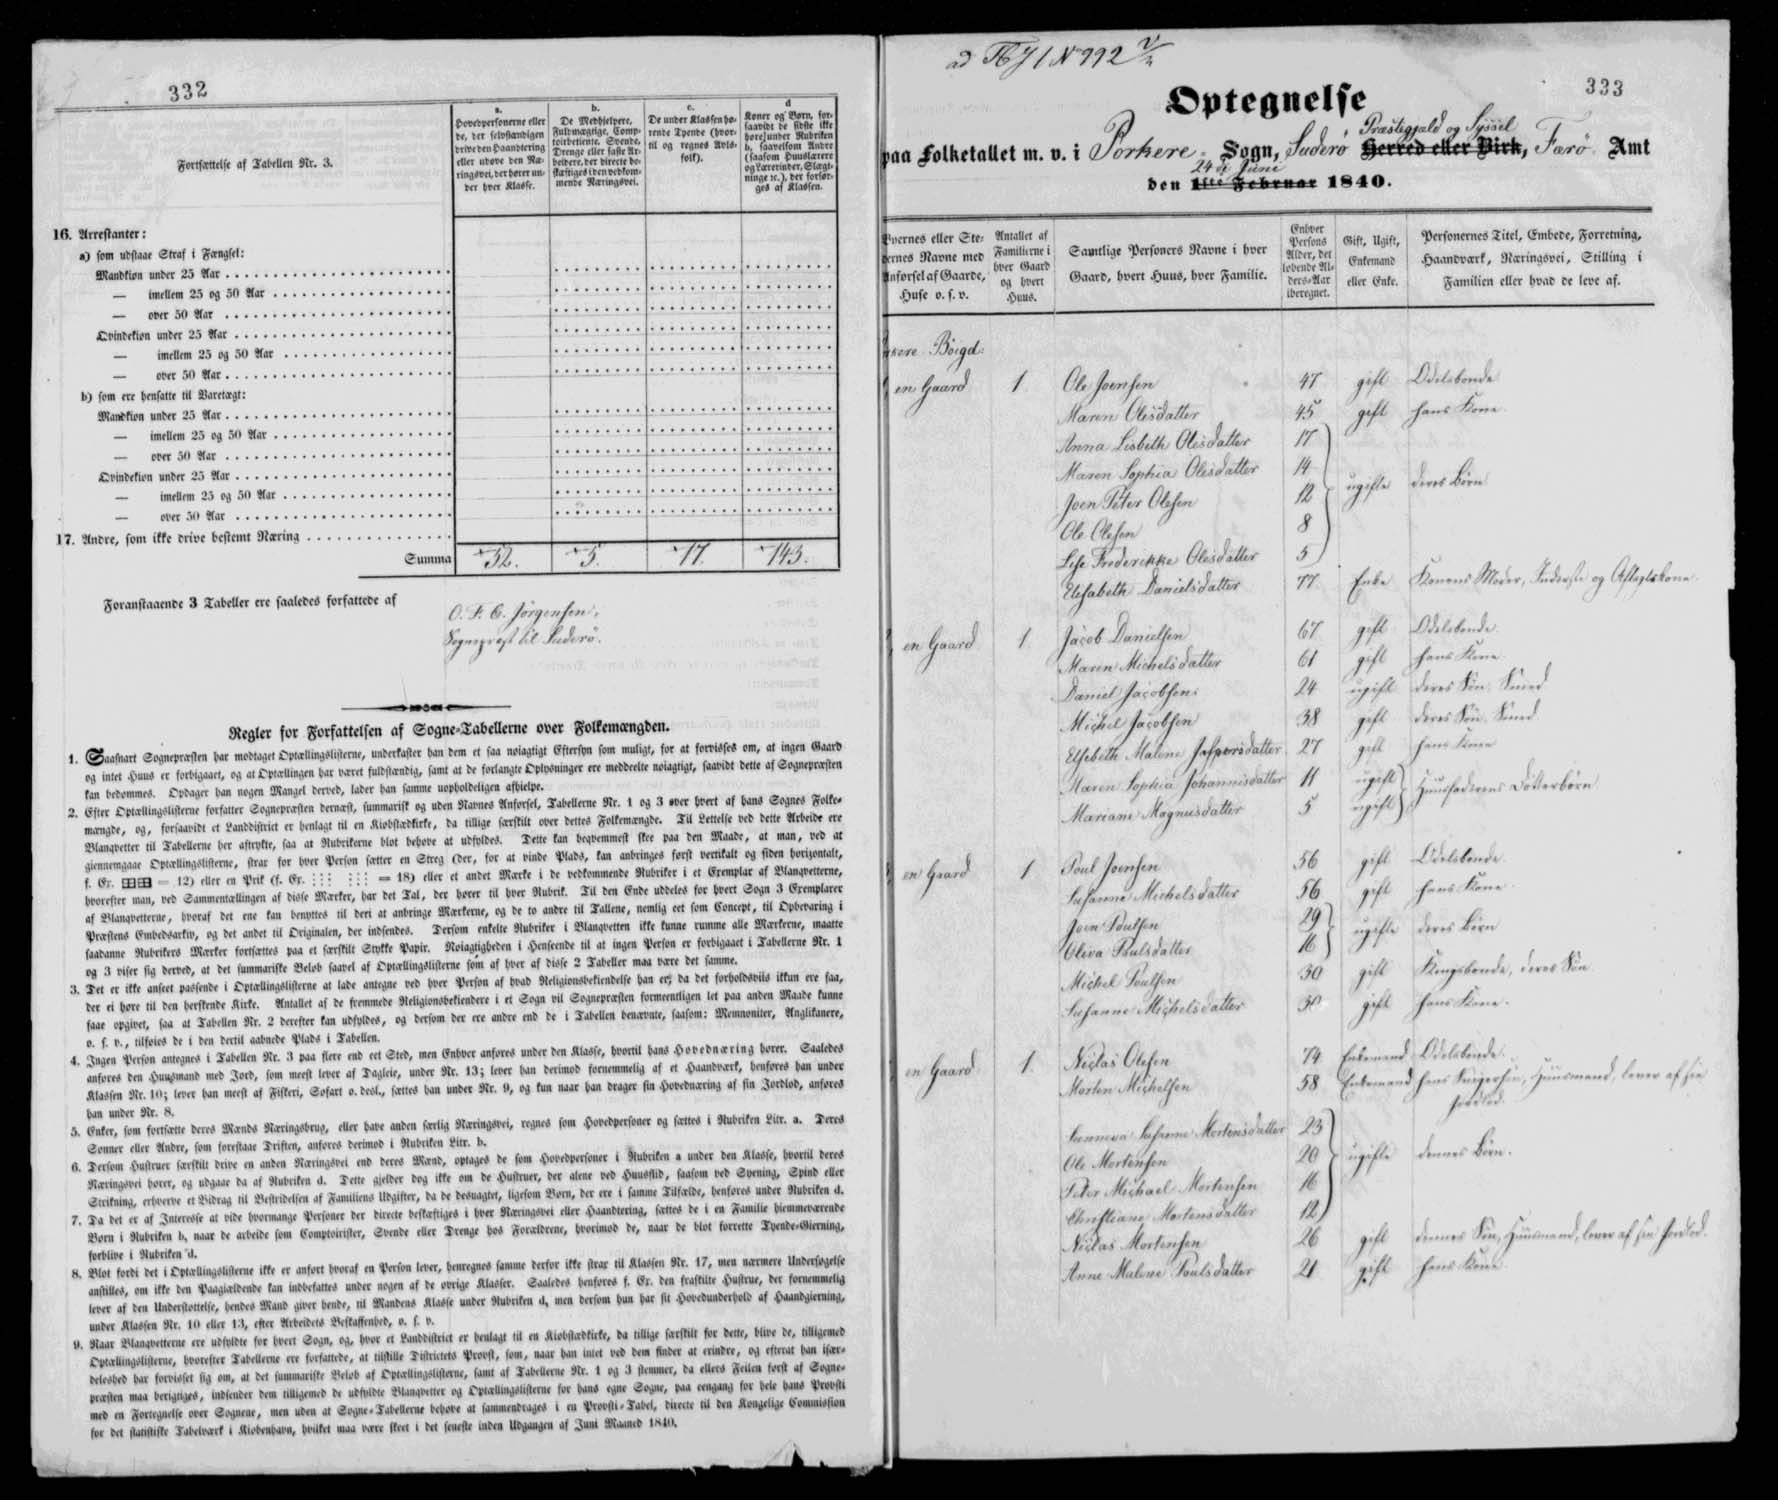 332
Fortsættelse af Tabellen Nr. 3.
a.
Hovedpersonerne eller
de, der selvstændigen
drive den Haandtering
eller udøve den Næ-
ringsvei, der hører un-
der hver Klasse.
b.
De Medhjelpere,
Fuldmægtige, Comp-
toirbetiente, Svende,
Drenge eller faste Ar-
beidere, der directe be-
skæftiges i den vedkom-
mende Næringsvei.
c.
De under Klassen hø-
rende Tyende (hvor-
til og regnes Avls-
folk).
d
Koner og Børn, for-
saavidt de sidste ikke
høre under Rubriken
b, saavelsom Andre
(saasom Huuslærere
og Lærerinder, Slægt-
ninge ɾc.), der forsør-
ges af Klassen.
16. Arrestanter:
a) som udstaae Straf i Fængsel:
Mandkiøn under 25 Aar
— imellem 25 og 50 Aar
— over 50 Aar
Qvindekiøn under 25 Aar
— imellem 25 og 50 Aar
— over 50 Aar
b) som ere hensatte til Varetægt:
Mandkiøn under 25 Aar
— imellem 25 og 50 Aar
— over 50 Aar
Qvindekiøn under 25 Aar
— imellem 25 og 50 Aar
— over 50 Aar
17. Andre, som ikke drive bestemt Næring
Summa 52. 5. 17. 143.
Foranstaaende 3 Tabeller ere saaledes forfattede af
O. F. C. Jörgensen,
Sognepræst til Suderö.
Regler for Forfattelsen af Sogne-Tabellerne over Folkemængden.
1. Saasnart Sognepræsten har modtaget Optællingslisterne, underkaster han dem et saa nøiagtigt Eftersyn som muligt, for at forvisses om, at ingen Gaard
og intet Huus er forbigaaet, og at Optællingen har været fuldstændig, samt at de forlangte Oplysninger ere meddeelte nøiagtigt, saavidt dette af Sognepræsten
kan bedømmes. Opdager han nogen Mangel derved, lader han samme uopholdeligen afhielpe.
2. Efter Optællingslisterne forfatter Sognepræsten dernæst, summarisk og uden Navnes Anførsel, Tabellerne Nr. 1 og 3 over hvert af hans Sognes Folke-
mængde, og, forsaavidt et Landdistrict er henlagt til en Kiøbstædkirke, da tillige særskilt over dettes Folkemængde. Til Lettelse ved dette Arbeide ere
Blanqvetter til Tabellerne her aftrykte, saa at Rubrikerne blot behøve at udfyldes. Dette kan beqvemmest skee paa den Maade, at man, ved at
giennemgaae Optællingslisterne, strax for hver Person sætter en Streg (der, for at vinde Plads, kan anbringes først vertikalt og siden horizontalt,
f. Ex. = 12) eller en Prik (f. Ex. = 18) eller et andet Mærke i de vedkommende Rubriker i et Exemplar af Blanqvetterne,
hvorefter man, ved Sammentællingen af disse Mærker, har det Tal, der hører til hver Rubrik. Til den Ende uddeles for hvert Sogn 3 Exemplarer
af Blanqvetterne, hvoraf det ene kan benyttes til deri at anbringe Mærkerne, og de to andre til Tallene, nemlig eet som Concept, til Opbevaring i
Præstens Embedsarkiv, og det andet til Originalen, der indsendes. Dersom enkelte Rubriker i Blanqvetten ikke kunne rumme alle Mærkerne, maatte
saadanne Rubrikers Mærker fortsættes paa et særskilt Stykke Papir. Nøiagtigheden i Henseende til at ingen Person er forbigaaet i Tabellerne Nr. 1
og 3 viser sig derved, at det summariske Beløb saavel af Optællingslisterne som af hver af disse 2 Tabeller maa være det samme.
3. Det er ikke anseet passende i Optællingslisterne at lade antegne ved hver Person af hvad Religionsbekiendelse han er; da det forholdsviis ikkun ere faa,
der ei høre til den herskende Kirke. Antallet af de fremmede Religionsbekiendere i et Sogn vil Sognepræsten formeentligen let paa anden Maade kunne
faae opgivet, saa at Tabellen Nr. 2 derefter kan udfyldes, og dersom der ere andre end de i Tabellen benævnte, saasom: Memnoniter, Anglikanere,
o. s. v., tilføies de i den dertil aabnede Plads i Tabellen.
4. Ingen Person antegnes i Tabellen Nr. 3 paa flere end eet Sted, men Enhver anføres under den Klasse, hvortil hans Hovednæring hører. Saaledes
anføres den Huusmand med Jord, som meest lever af Dagleie, under Nr. 13; lever han derimod fornemmelig af et Haandværk, henføres han under
Klassen Nr. 10; lever han meest af Fiskeri, Søfart o. desl., sættes han under Nr. 9, og kun naar han drager sin Hovednæring af sin Jordlod, anføres
han under Nr. 8.
5. Enker, som fortsætte deres Mænds Næringsbrug, eller have anden særlig Næringsvei, regnes som Hovedpersoner og sættes i Rubriken Litr. a. Deres
Sønner eller Andre, som forestaae Driften, anføres derimod i Rubriken Litr. b.
6. Dersom Hustruer særskilt drive en anden Næringsvei end deres Mænd, optages de som Hovedpersoner i Rubriken a under den Klasse, hvortil deres
Næringsvei hører, og udgaae da af Rubriken d. Dette gjelder dog ikke om de Hustruer, der alene ved Huusflid, saasom ved Syening, Spind eller
Strikning, erhverve et Bidrag til Bestridelsen af Familiens Udgifter, da de desuagtet, ligesom Børn, der ere i samme Tilfælde, henføres under Rubriken d.
7. Da det er af Interesse at vide hvormange Personer der directe beskæftiges i hver Næringsvei eller Haandtering, sættes de i en Familie hiemmeværende
Børn i Rubriken b, naar de arbeide som Comptoirister, Svende eller Drenge hos Forældrene, hvorimod de, naar de blot forrette Tyende-Gierning,
forblive i Rubriken d.
8. Blot fordi det i Optællingslisterne ikke er anført hvoraf en Person lever, henregnes samme derfor ikke strax til Klassen Nr. 17, men nærmere Undersøgelse
anstilles, om ikke den Paagiældende kan indbefattes under nogen af de øvrige Klasser. Saaledes henføres f. Ex. den fraskilte Hustrue, der fornemmelig
lever af den Understøttelse, hendes Mand giver hende, til Mandens Klasse under Rubriken d, men dersom hun har sit Hovedunderhold af Haandgierning,
under Klassen Nr. 10 eller 13, efter Arbeidets Beskaffenhed, o. s. v.
9. Naar Blanqvetterne ere udfyldte for hvert Sogn, og, hvor et Landdistrict er henlagt til en Kiøbstædkirke, da tillige særskilt for dette, blive de, tilligemed
Optællingslisterne, hvorefter Tabellerne ere forfattede, at tilstille Districtets Provst, som, naar han intet ved dem finder at erindre, og efterat han især-
deleshed har forvisset sig om, at det summariske Beløb af Optællingslisterne, samt af Tabellerne Nr. 1 og 3 stemmer, da ellers Feilen først af Sogne-
præsten maa berigtiges, indsender dem tilligemed de udfyldte Blanqvetter og Optællingslisterne for hans egne Sogne, paa eengang for hele hans Provsti
med en Fortegnelse over Sognene, men uden at Sogne-Tabellerne behøve at sammendrages i en Provsti-Tabel, directe til den Kongelige Commission
for det statistiske Tabelværk i Kiøbenhavn, hvilket maa være skeet i det seneste inden Udgangen af Juni Maaned 1840.
333
Optegnelse
Præstegjæld og Syssel
paa Folketallet m. v. i Porkere Sogn, Suderö Herred eller Birk, Færö Amt
24de Juni
den 1ste Februar 1840.
Byernes eller Ste-
dernes Navne med
Anførsel af Gaarde,
Huse o. s. v.
Antallet af
Familierne i
hver Gaard
og hvert
Huus.
Samtlige Personers Navne i hver
Gaard, hvert Huus, hver Familie.
Enhver
Persons
Alder, det
løbende Al-
ders-Aar
iberegnet.
Gift, Ugift,
Enkemand
eller Enke.
Personernes Titel, Embede, Forretning,
Haandværk, Næringsvei, Stilling i
Familien eller hvad de leve af.
Böigd:
en Gaard 1 Ole Joensen 47 gift Odelsbonde
Maren Olesdatter 45 gift hans Kone
Anna Lisbeth Olesdatter 17
Maren Sophia Olesdatter 14
Joen Peter Olesen 12 ugifte deres Börn
Ole Olesen 8
Lise Frederikke Olesdatter 5
Elisabeth Danielsdatter 77 Enke Konens Moder, Inderste og Aftægtskone.
en Gaard 1 Jacob Danielsen 67 gift Odelsbonde.
Maren Michelsdatter 61 gift hans Kone
Daniel Jacobsen 24 ugift deres Sön, Smed
Michel Jacobsen 38 gift deres Sön, Smed
Elsebeth Malene Jespersdatter 27 gift hans Kone
Maren Sophia Johannisdatter 11 ugift
Mariane Magnusdatter 5 ugift Huusfaderens Dötterbörn
en Gaard 1 Poul Joensen 56 gift Odelsbonde.
Susanne Michelsdatter 56 gift hans Kone.
Joen Poulsen 29
Oliva Poulsdatter 16 ugifte deres Börn
Michel Poulsen 30 gift Kongsbonde, deres Sön.
Susanne Michelsdatter 30 gift hans Kone.
en Gaard 1. Niclas Olesen 74 Enkemand Odelsbonde.
Morten Michelsen 58 Enkemand hans Svigersön, Huusmand, lever af sin
Jordlod.
Sunneva Susanne Mortensdatter 23
Ole Mortensen 20 ugifte dennes Börn.
Peter Michael Mortensen 16
Christiane Mortensdatter 12
Niclas Mortensen 26 gift dennes Sön, Huusmand, lever af sin Jordlod.
Anne Malene Poulsdatter 21 gift hans Kone.